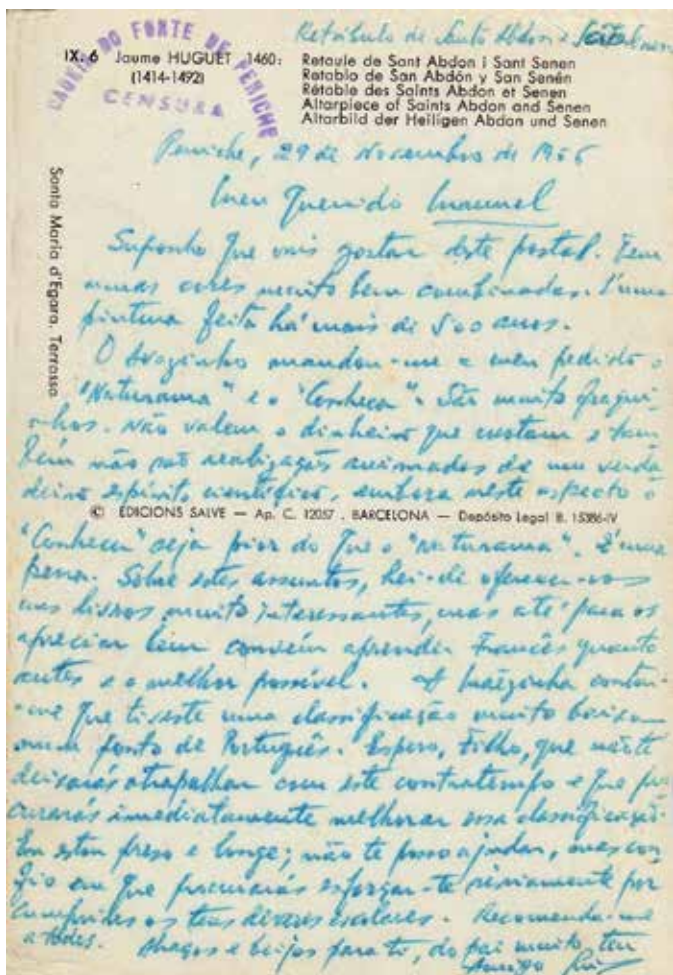 Retábulo de Santo Abdon e
CADEIA DO FORTE DE PENICHE
CENSURA
IX. 6 Jaume HUGUET 1460:
(1414-1492)
Retaule de Sant Abdon i Sant Senen
Retablo de San Abdón y San Senén
Rétable des Saints Abdon et Senen
Altarpiece of Saints Abdon and Senen
Altarbild der Heiligen Abdon und Senen
Santa Maria d'Egara. Terrassa
Peniche, 29 de Novembro de 1966
Meu Querido Manuel
Suponho que vais gostar deste postal. Tem
umas cores muito bem combinadas. É uma
pintura feita há mais de 500 anos.
O Avozinho mandou-me a meu pedido o
"Naturama" e o "Conhecer". São muito fraqui-
nhos. Não valem o dinheiro que custam e tam
bém não são realizações animadas de um verda
deiro espírito científico, embora neste aspecto o
© EDICIONS SALVE — Ap. C. 12057 . BARCELONA — Depósito Legal B. 15386-IV
"Conhecer" seja pior do que o "Naturama". É uma
pena. Sobre estes assuntos, hei-de oferecer-vos
uns livros muito interessantes, mas até para os
apreciar bem convém aprender Francês quanto
antes e o melhor possível. A Mãezinha contou-
-me que tiveste uma classificação muito baixa
num ponto de Português. Espero, Filho, que não te
deixarás atrapalhar com este contratempo e que pro
curarás imediatamente melhorar essa classificação.
Eu estou preso e longe; não te posso ajudar, mas con
fio em que procurarás esforçar-te sèriamente por
cumprires os teus deveres escolares. Recomenda-me
a todos. Abraços e beijos para ti, do pai muito teu
amigo Rui